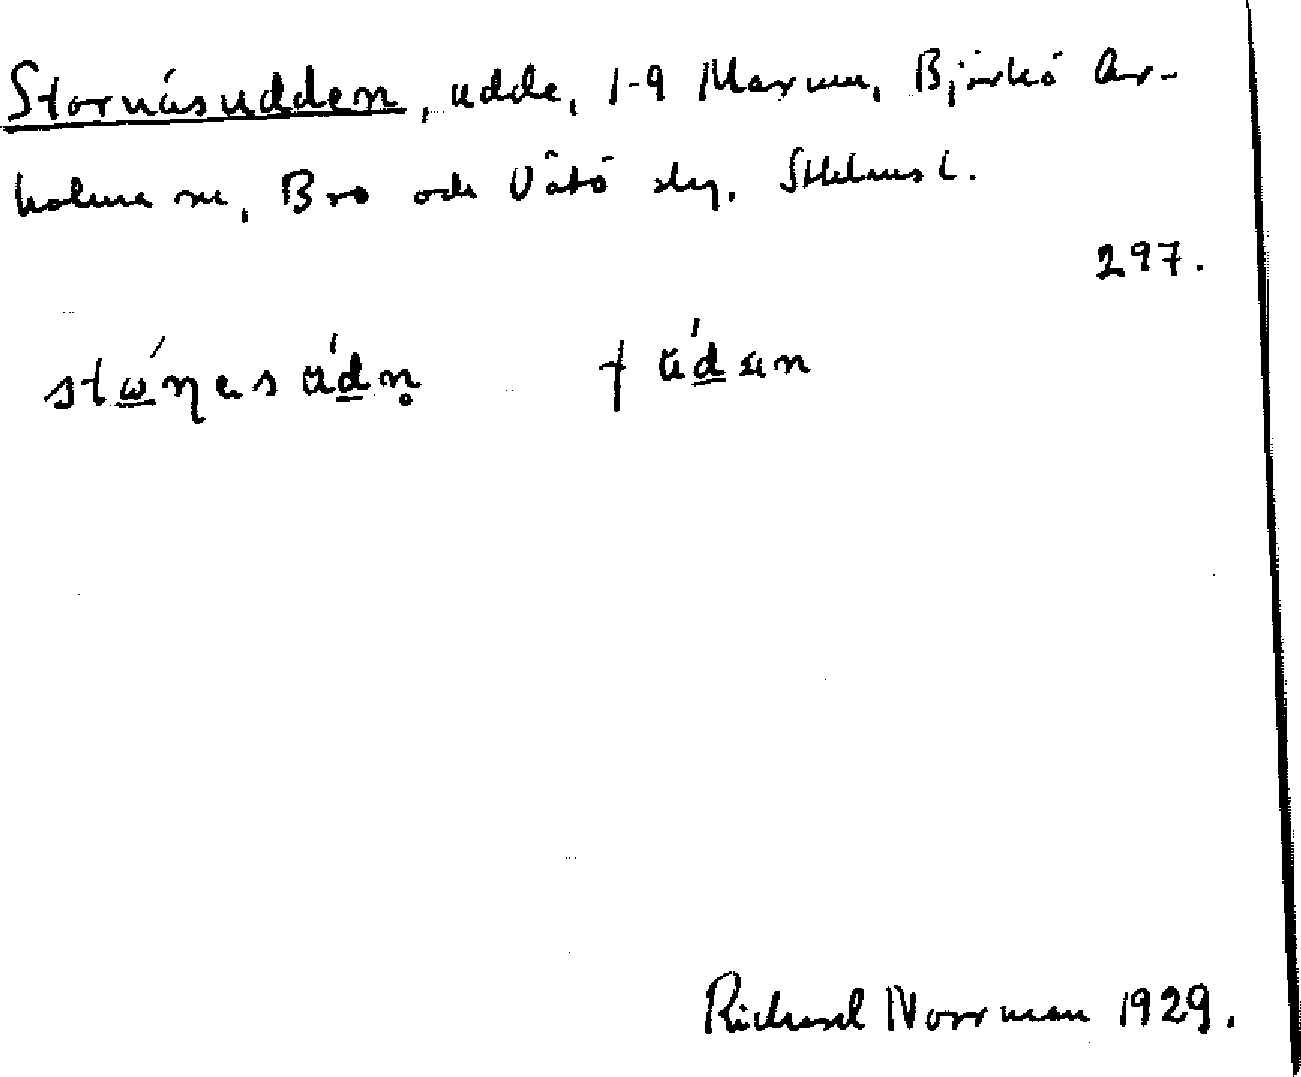 Stornäsudden, udde, 1-9 Marum, Björkö Ar-
holma sn, Bro och Vätö slg. Sthlms l.
297.
Richard Norrman 1929.